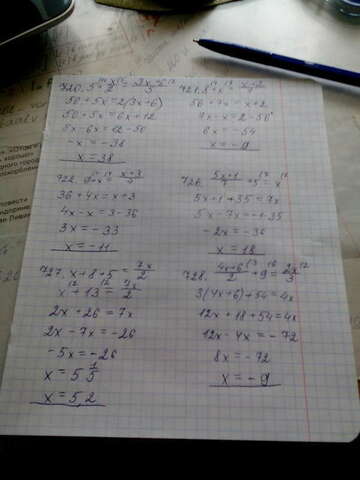 50 + 5x = 2(3x+6)
50 + 5x = 6x + 12
5x - 6x = 12 - 50
-x = -38
x = 38
56 + 7x = x + 2
7x - x = 2 - 56
6x = -54
x = -9
722. 9 + x = \frac{x+3}{4}
36 + 4x = x + 3
4x - x = 3 - 36
3x = -33
x = -11
726. \frac{5x+1}{7} + 5 = x
5x + 1 + 35 = 7x
5x - 7x = -1 - 35
-2x = -36
x = 18
727. x + 8 + 5 = \frac{7x}{2}
x + 13 = \frac{7x}{2}
2x + 26 = 7x
2x - 7x = -26
-5x = -26
x = 5 \frac{1}{5}
x = 5,2
728. \frac{4x+6}{2} + 9 = \frac{2x}{3}
3(4x+6) + 54 = 4x
12x + 18 + 54 = 4x
12x - 4x = -72
8x = -72
x = -9